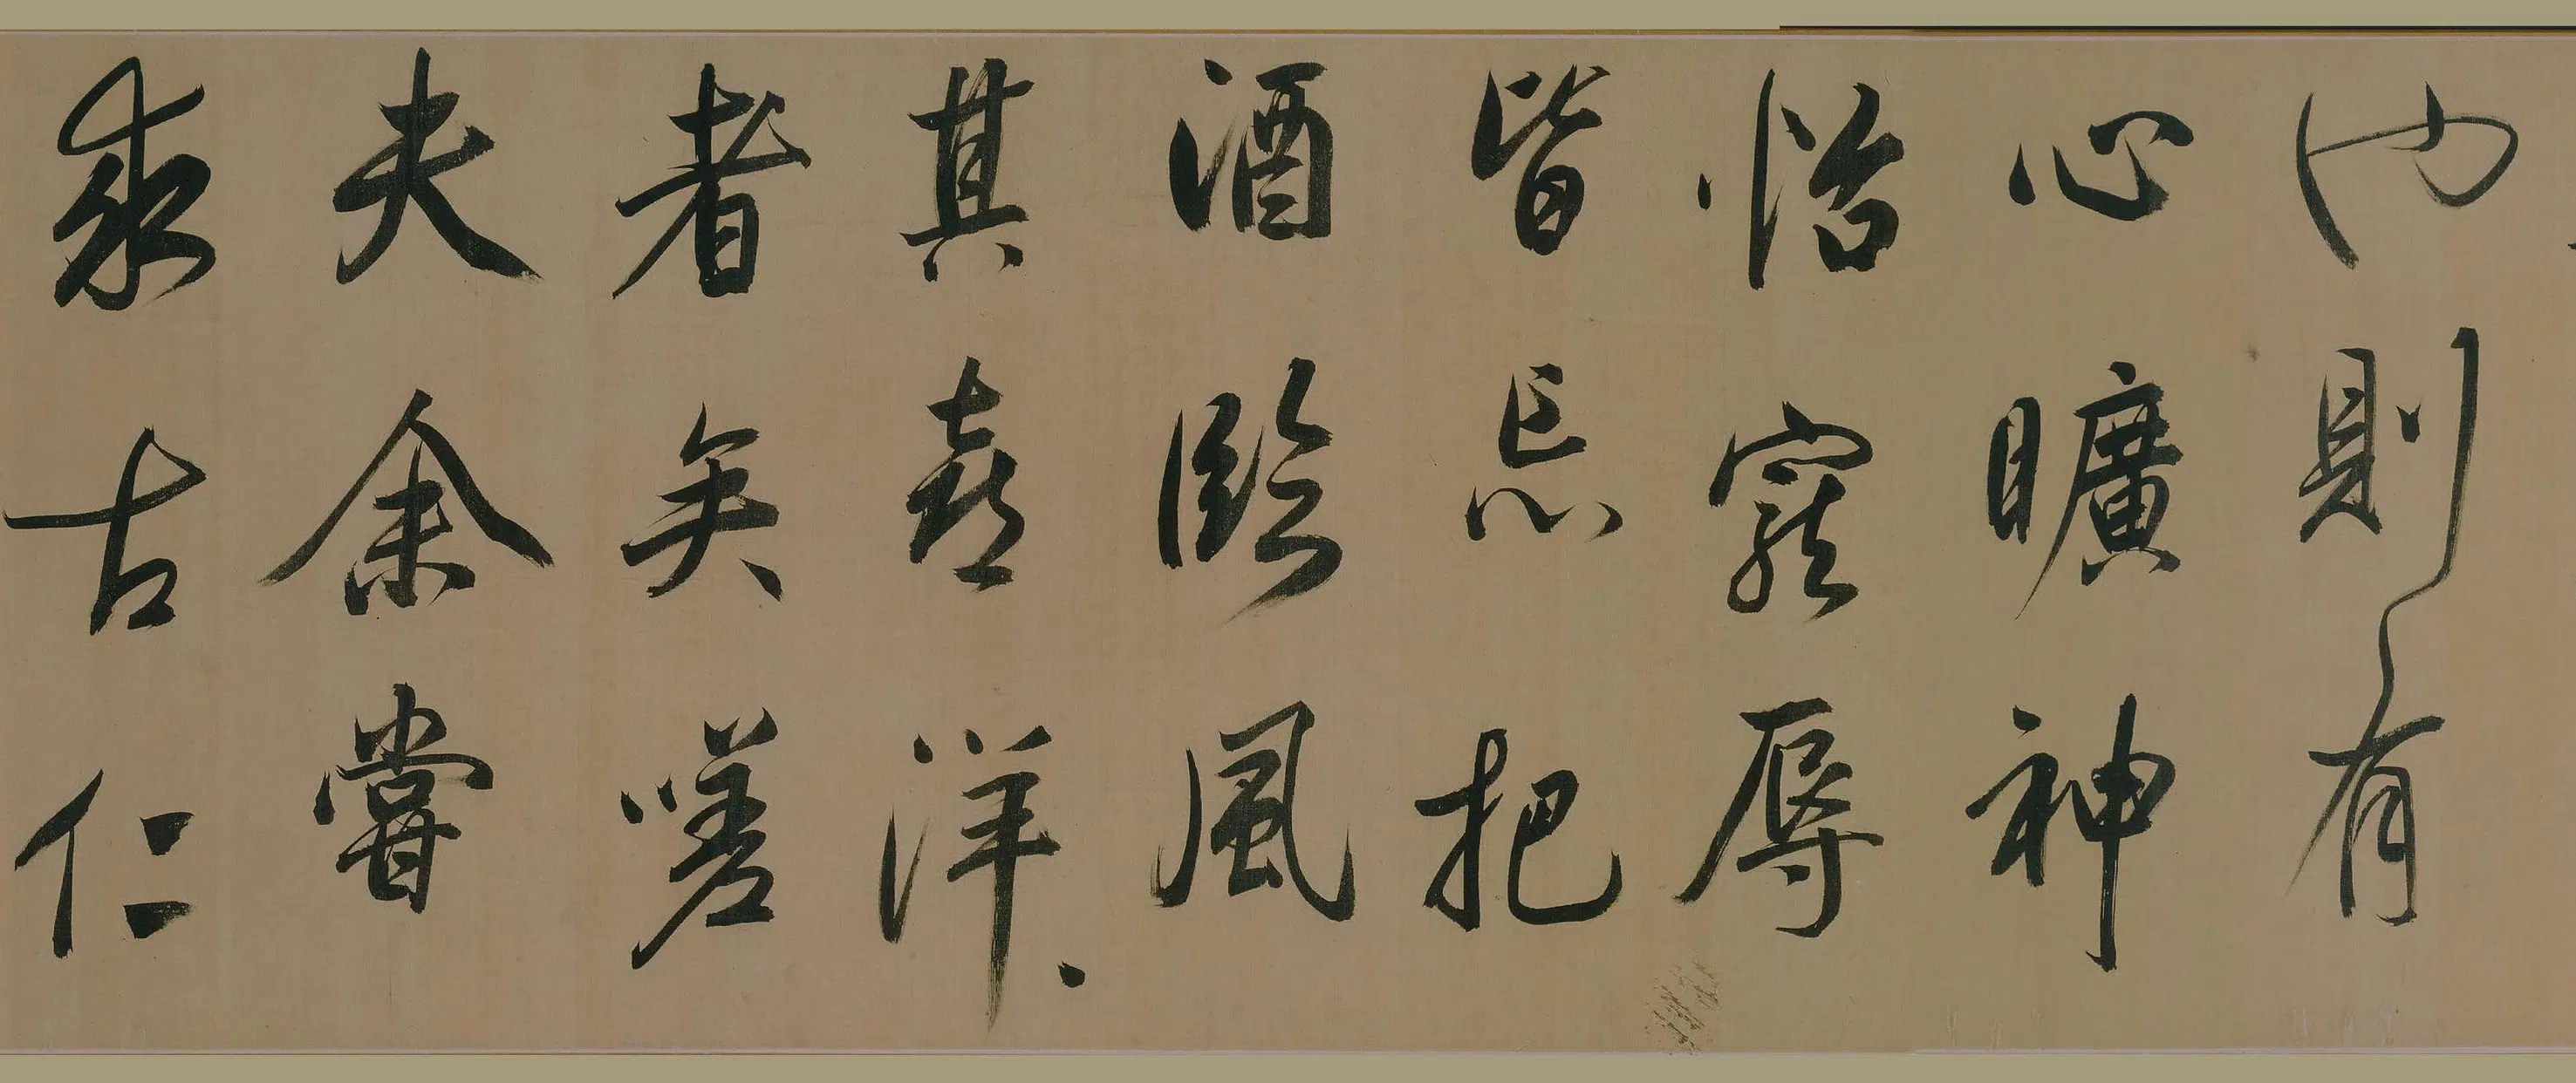 也則有
心曠神
怡寵辱
皆忘把
酒臨風
其喜洋〻
者矣嗟
夫余嘗
求古仁